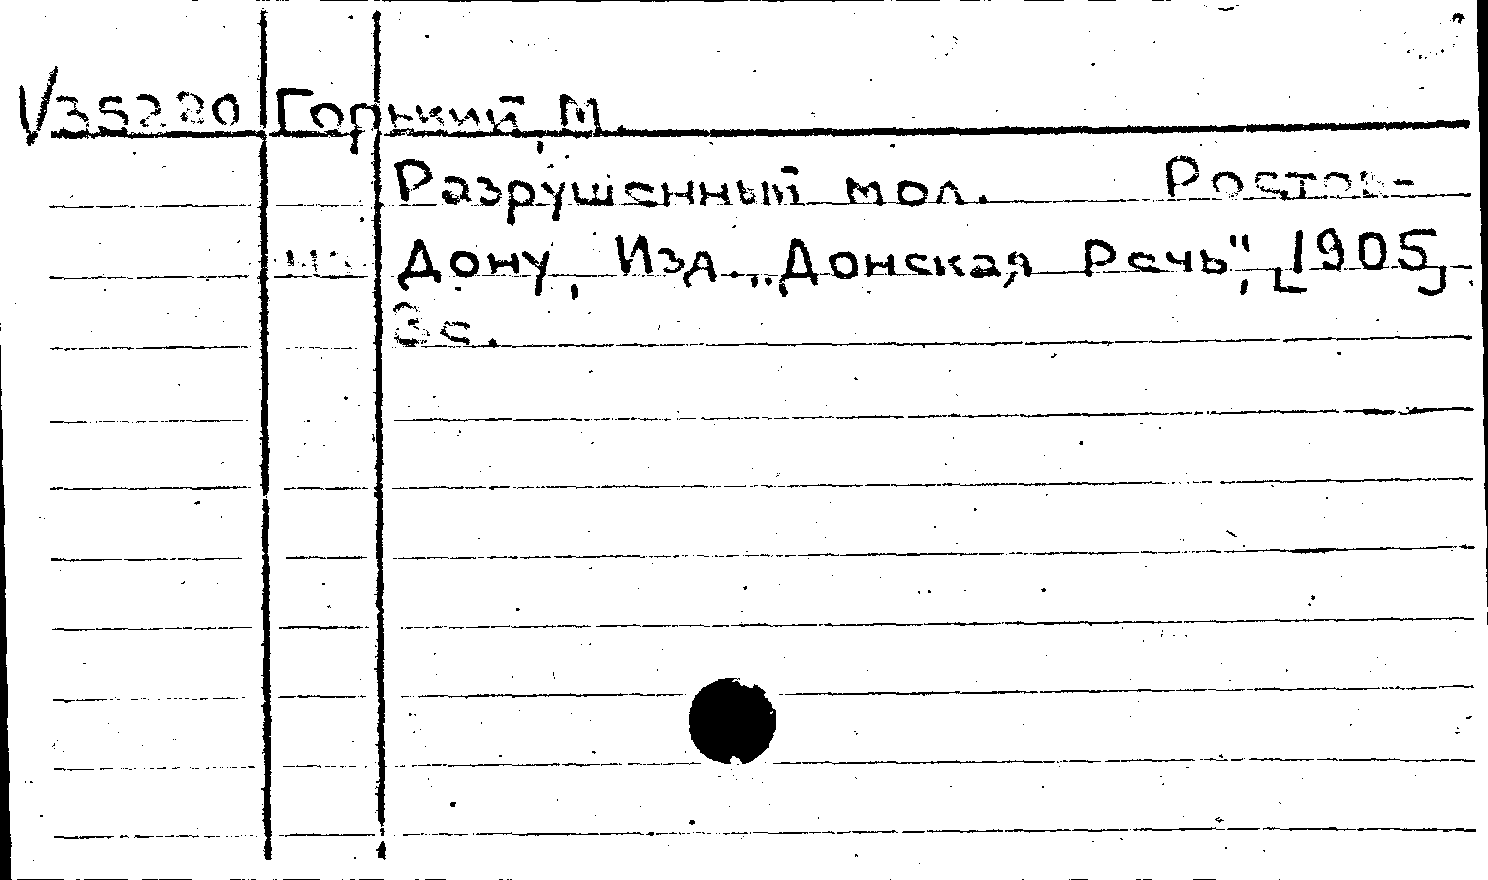 V35220 Горький, М.
Разрушенный мол. Ростов-
на Дону, Изд. „Донская Речь", [1905].
3 с.